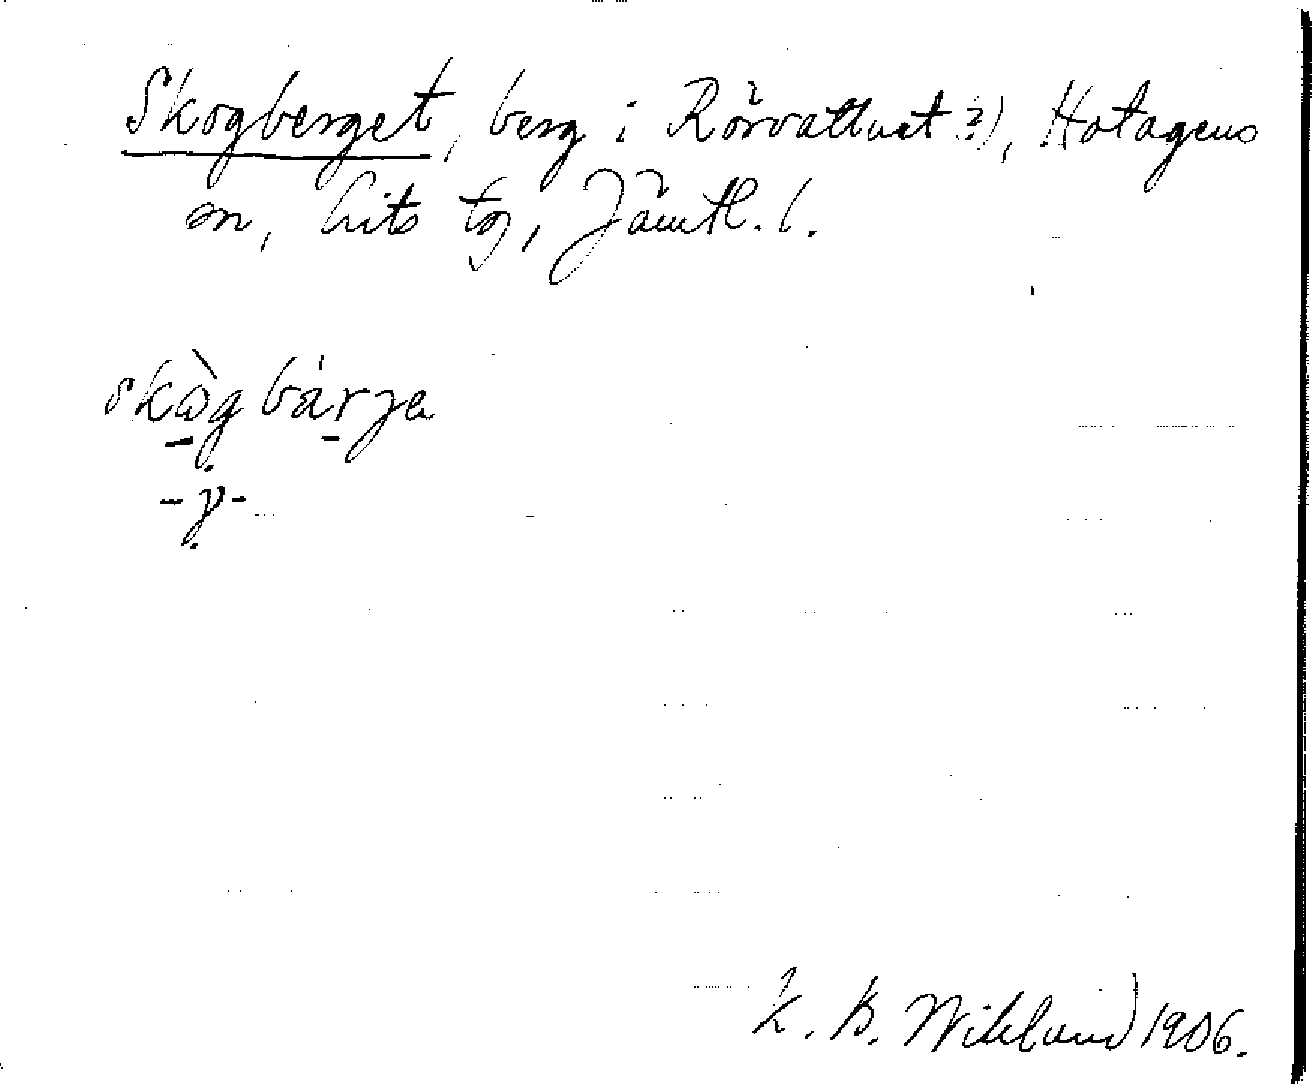 Skogberget, berg i Rörvattnet ?), Hotagens
sn, Lits tg, Jämtl. l.
skògbárja
-γ-
K. B. Wiklund 1906.